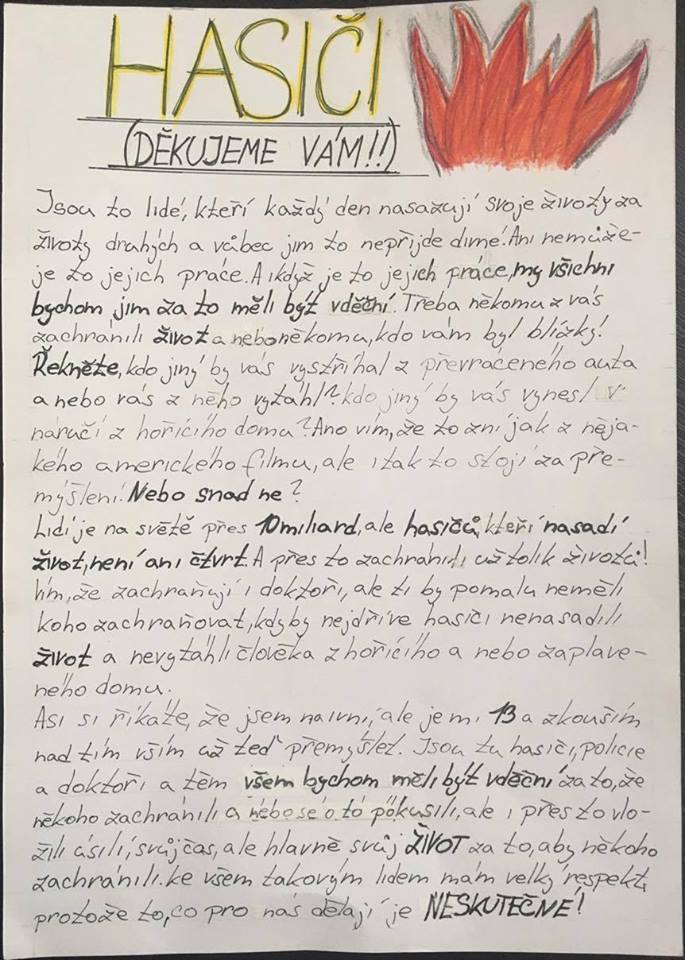 HASIČI
(DĚKUJEME VÁM!!)
Jsou to lidé, kteří každý den nasazují svoje životy za
životy druhých a vůbec jim to nepřijde divné! Ani nemůže-
je to jejich práce. A i když je to jejich práce, my všichni
bychom jim za to měli být vděční. Treba někomu z vás
zachránili život a nebo někomu, kdo vám byl blízký!
Řekněte, kdo jiný by vás vystříhal z převráceného auta
a nebo vás z něho vytáhl? kdo jiný by vás vynesl v
naručí z hořícího domu? Ano vím, že to zní jak z něja-
kého amerického filmu, ale i tak to stojí za pře-
myšlení! Nebo snad ne?
Lidí je na světě přes 10 miliard, ale hasičů, kteří nasadí
život, není ani čtvrt. A přes to zachránili už tolik životů!
Vím, že zachraňují i doktoři, ale ti by pomalu neměli
koho zachraňovat, kdyby nejdříve hasiči nenasadili
život a nevytáhli člověka z hořícího a nebo zaplave-
ného domu.
Asi si říkáte, že jsem naivní, ale je mi 13 a zkouším
nad tím vším už teď přemýšlet. Jsou tu hasiči, policie
a doktoři a těm všem bychom měli být vděční za to, že
někoho zachránili a nebo se o to pokusili, ale i přes to vlo-
žili úsilí, svůj čas, ale hlavně svůj ŽIVOT za to, aby někoho
zachránili. ke všem takovým lidem mám velký respekt,
protože to, co pro nás dělají je NESKUTEČNÉ!